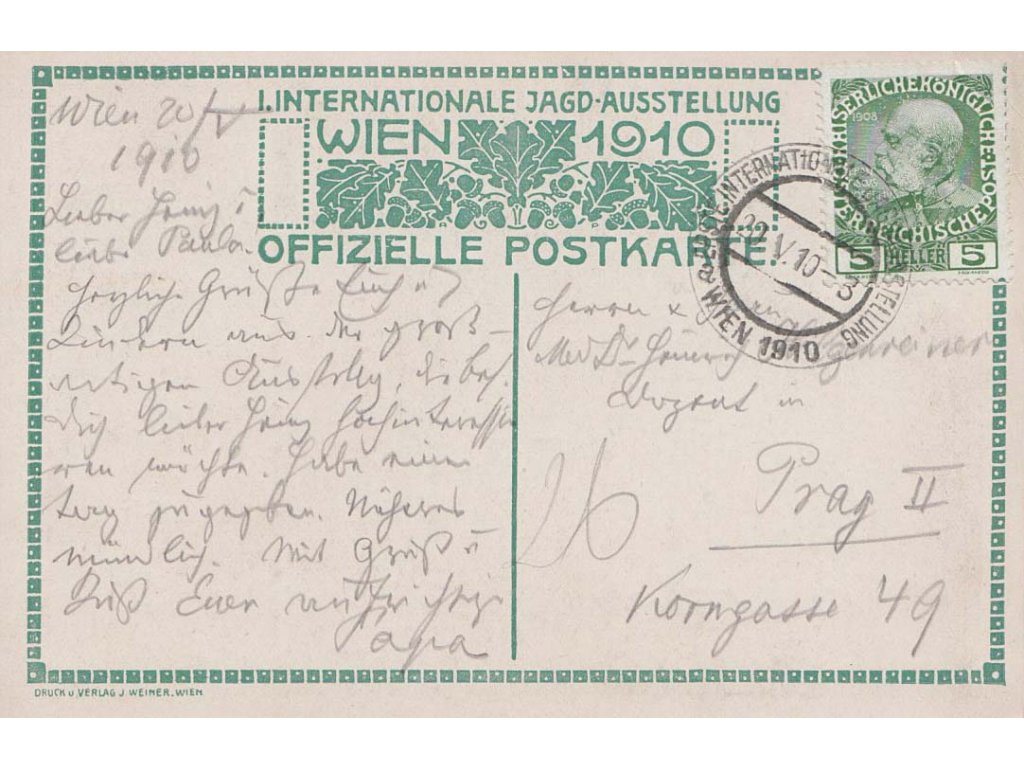 I. INTERNATIONALE JAGD-AUSSTELLUNG
WIEN 1910
OFFIZIELLE POSTKARTE.
KAISERLICHE KÖNIGLICHE ÖSTERREICHISCHE POST
1908
5 HELLER 5
ERSTE INTERNATIONALE JAGDAUSSTELLUNG
22.V.10-3
a WIEN 1910
Wien 20/V
1910
Lieber Heinz u
liebe Paula.
Herzliche Grüße Euch u
Kindern aus der groß-
artigen Ausstellg, die bes.
Dich lieber Heinz hochinteressi
eren möchte. Habe einen
Tag zugegeben. Näheres
mündlich. Mit Gruß u
Kuß Euer aufrichtige
Papa
Herrn
Med Dr Heinrich
Dozent in
Prag II
Korngasse 49
26
DRUCK u. VERLAG J. WEINER, WIEN